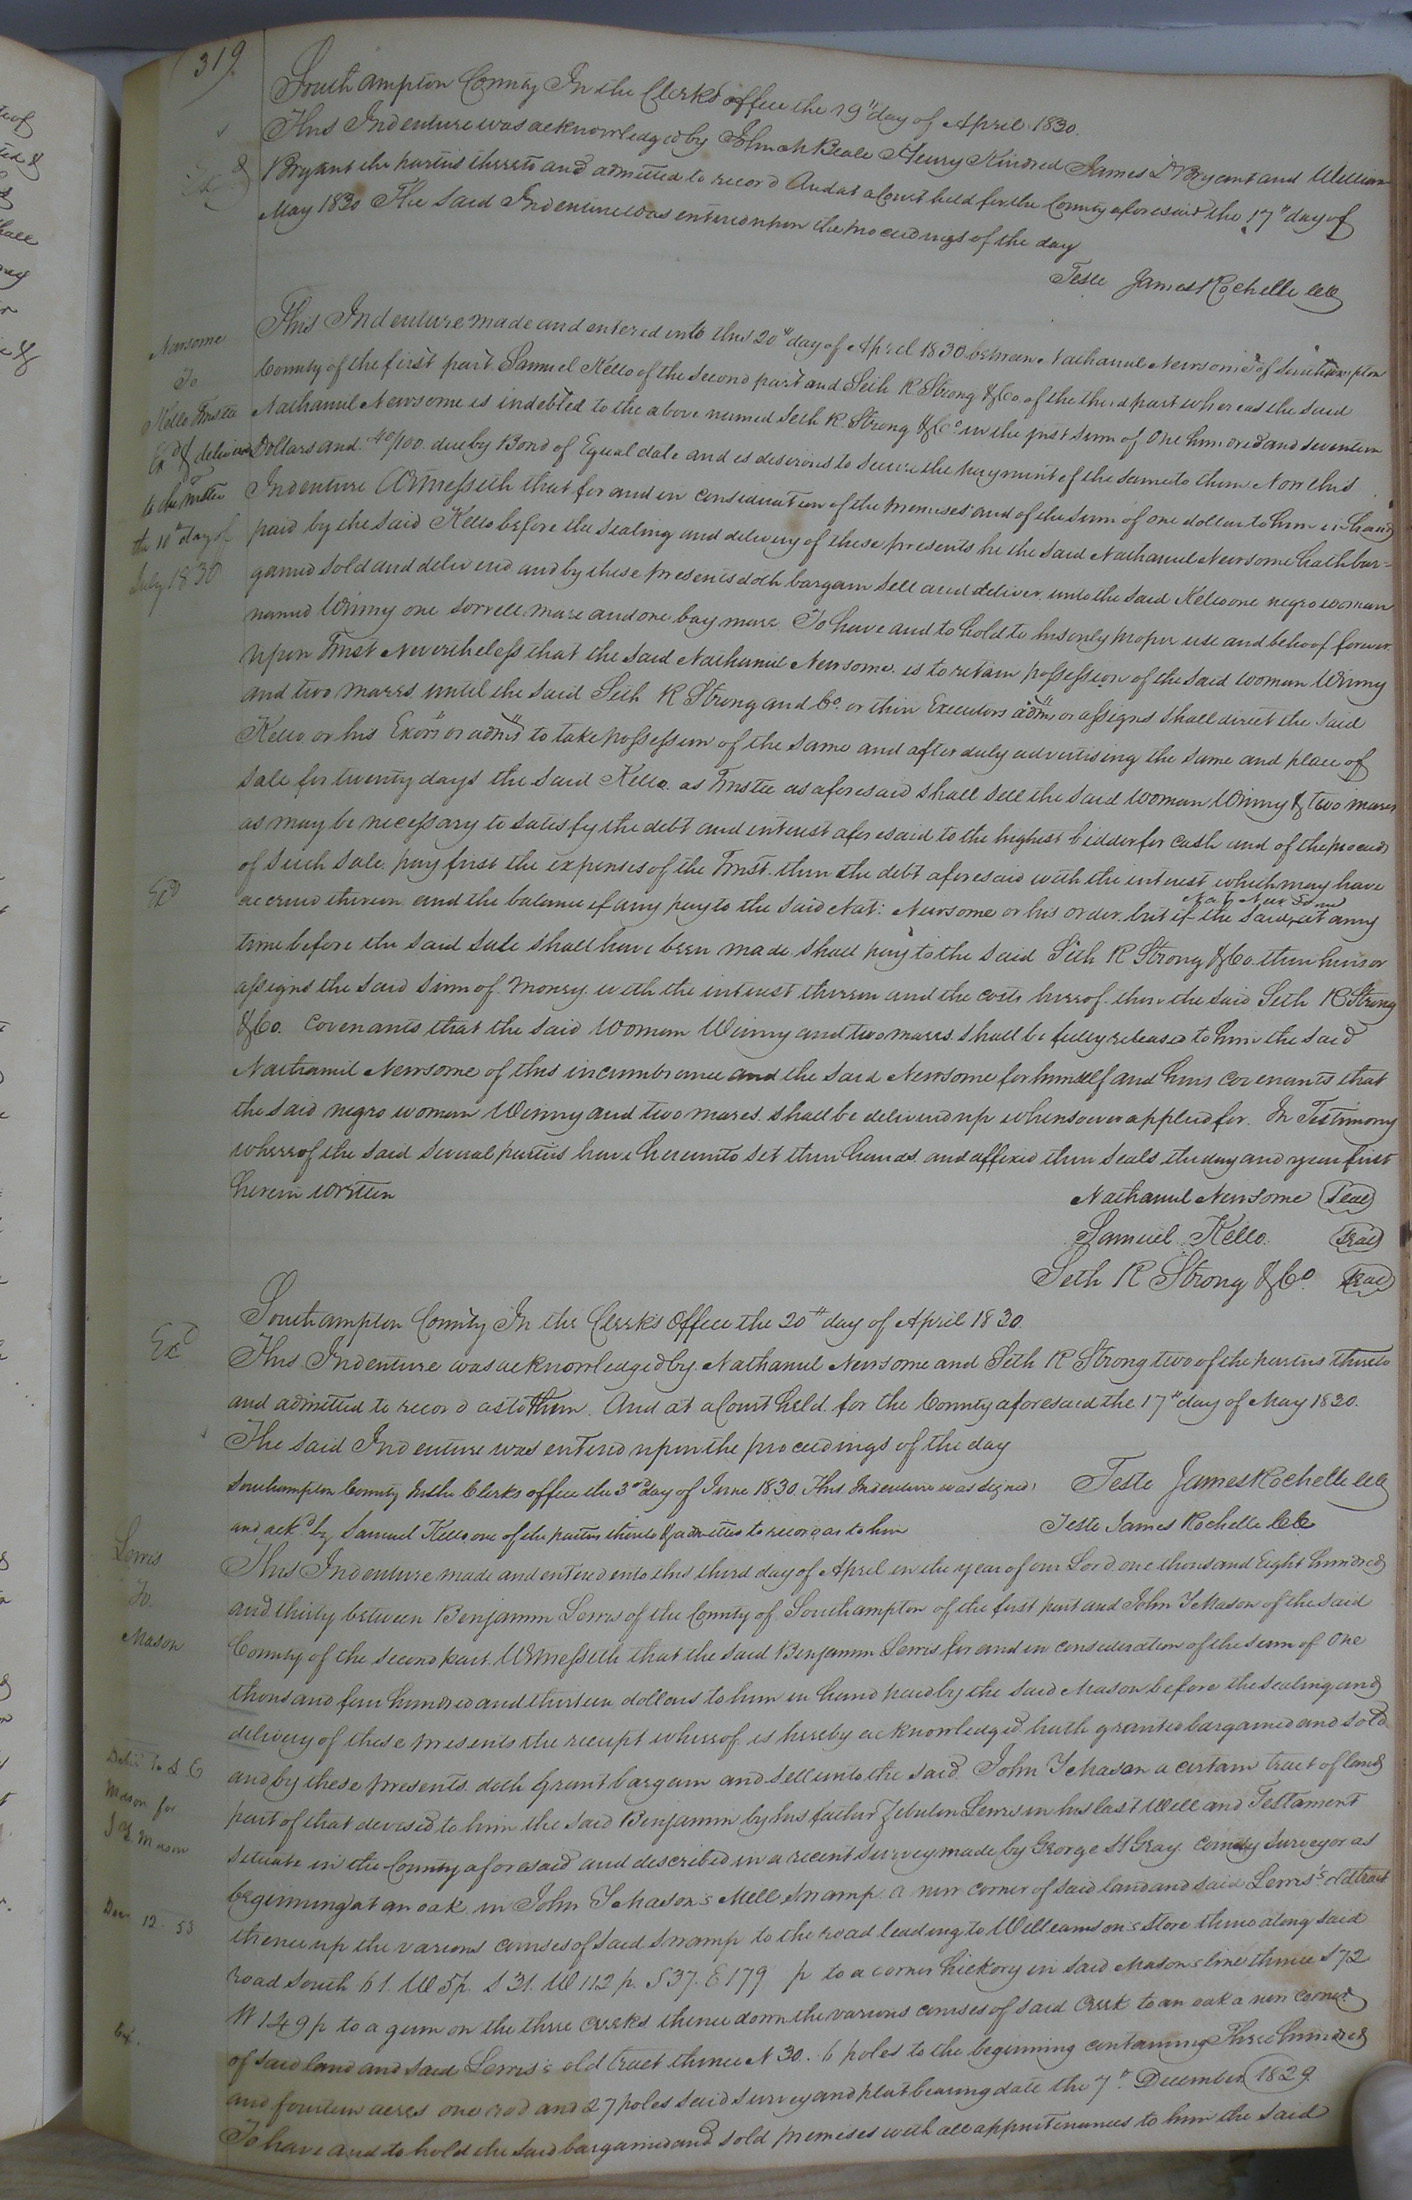 319
Southampton County In the Clerks office the 19" day of April 1830.
This Indenture was acknowledged by John M Beale Henry Kindred James D Bryant and William
Bryant the parties thereto and admitted to record And at a Court held for the County aforesaid the 17" day of
May 1830 The said Indenture was entered upon the proceedings of the day
Teste James Rochelle CC
Newsome
To
Kello Trustee
Exd & delivered
to the Trustee
the 10th day of
July 1830
This Indenture made and entered into this 20" day of April 1830 between Nathaniel Newsome of Southampton
County of the first part Samuel Kello of the second part and Seth R Strong & Co of the third part whereas the said
Nathaniel Newsome is indebted to the above named Seth R. Strong & Co in the just sum of One hundred and seventeen
Dollars and 40/100 due by Bond of Equal date and is desirous to secure the payment of the same to them Now this
Indenture Witnesseth that for and in consideration of the premises and of the sum of one dollar to him in hand
paid by the said Kello before the sealing and delivery of these presents he the said Nathaniel Newsome hath bar=
gained sold and delivered and by these presents doth bargain sell and deliver unto the said Kello one negro woman
named Winny one sorrell mare and one bay mare To have and to hold to his only proper use and behoof forever
Upon Trust Nevertheless that the said Nathaniel Newsome is to retain possession of the said woman Winny
and two mares until the said Seth R Strong and Co. or their Executors adms or assigns shall direct the said
Kello or his Exors or adms to take possession of the same and after duly advertising the same and place of
sale for twenty days the said Kello as Trustee as aforesaid shall sell the said woman Winny & two mares
as may be necessary to satisfy the debt and interest aforesaid to the highest bidder for cash and of the proceeds
of such sale pay first the expenses of the Trust then the debt aforesaid with the interest which may have
Exd
accrued thereon and the balance if any pay to the said Nat: Newsome or his order, but if the said Nat: Newsome at any
time before the said sale shall have been made shall pay to the said Seth R Strong & Co. their heirs or
assigns the said sum of Money with the interest thereon and the costs hereof then the said Seth R Strong
& Co. covenants that the said woman Winny and two mares shall be fully released to him the said
Nathaniel Newsome of this incumbrance and the said Newsome for himself and heirs covenants that
the said negro woman Winny and two mares shall be delivered up whensoever applied for. In Testimony
whereof the said several parties have hereunto set their hands and affixed their seals the day and year first
herein written
Nathaniel Newsome Seal
Samuel Kello. Seal
Seth R Strong & Co Seal
Southampton County In the Clerk's Office the 20th day of April 1830.
Exd
This Indenture was acknowledged by Nathaniel Newsome and Seth R Strong two of the parties thereto
and admitted to record as to them. And at a Court held for the County aforesaid the 17" day of May 1830.
The said Indenture was entered upon the proceedings of the day
Teste James Rochelle CC
Southampton County In the Clerks office the 3rd day of June 1830. This Indenture was signed
and ackd by Samuel Kello one of the parties thereto & admitted to record as to him
Teste James Rochelle CC
Lewis
To
Mason
This Indenture made and entered into this third day of April in the year of our Lord one thousand Eight hundred
and thirty between Benjamin Lewis of the County of Southampton of the first part and John Y Mason of the said
County of the second part Witnesseth that the said Benjamin Lewis for and in consideration of the sum of One
thousand four hundred and thirteen dollars to him in hand paid by the said Mason before the sealing and
delivery of these presents the receipt whereof is hereby acknowledged hath granted bargained and sold
Mason for
and by these presents doth Grant bargain and sell unto the said John Y Mason a certain tract of land
part of that devised to him the said Benjamin by his father Zebulon Lewis in his last Will and Testament
situate in the County aforesaid and described in a recent survey made by George H Gray County surveyor as
beginning at an oak in John Y Mason's Mill swamp a new corner of said land and said Lewis's old tract
thence up the various courses of said swamp to the road leading to Williamson's store thence along said
Decr 12. 53
road South 61. W 5p. S 31. W 112 p. S 37. E 179 p to a corner hickory in said Masons line thence S 72
W 149 p to a gum on the three creeks thence down the various courses of said Creek to an oak a new corner
of said land and said Lewis's old tract thence N 30. 6 poles to the beginning containing Three hundred
and fourteen acres one rod and 27 poles said survey and plat bearing date the 7" December 1829.
To have and to hold the said bargained and sold premises with all appurtenances to him the said